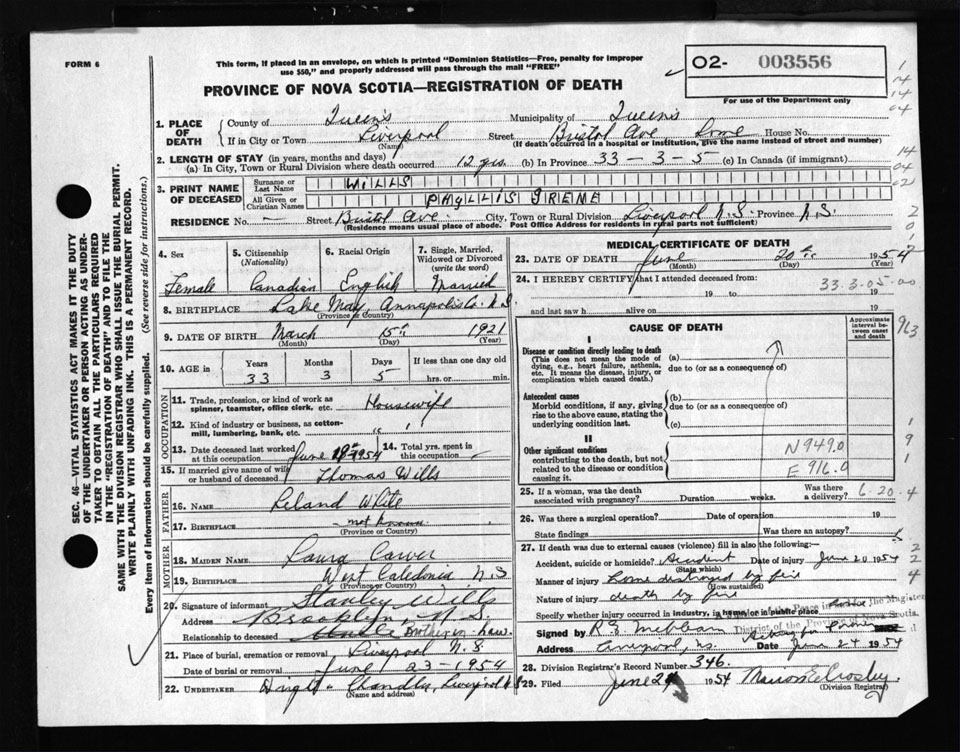 FORM 6
This form, if placed in an envelope, on which is printed "Dominion Statistics—Free, penalty for improper
use $50," and properly addressed will pass through the mail "FREE"
PROVINCE OF NOVA SCOTIA—REGISTRATION OF DEATH
02- 003556
For use of the Department only
1. PLACE OF DEATH
County of Queens Municipality of Queens
If in City or Town Liverpool Street Bristol Ave. Home House No.
(Name) (If death occurred in a hospital or institution, give the name instead of street and number)
2. LENGTH OF STAY (in years, months and days)
(a) In City, Town or Rural Division where death occurred 12 yrs. (b) In Province 33-3-5 (c) In Canada (if immigrant)
3. PRINT NAME OF DECEASED
Surname or Last Name WILLS
All Given or Christian Names PHYLLIS IRENE
RESIDENCE No. — Street Bristol Ave. City, Town or Rural Division Liverpool N.S. Province N.S.
(Residence means usual place of abode. Post Office Address for residents in rural parts not sufficient)
4. Sex
Female
5. Citizenship
(Nationality)
Canadian
6. Racial Origin
English
7. Single, Married, Widowed or Divorced
(write the word)
Married
8. BIRTHPLACE Lake May, Annapolis Co. N.S.
(Province or Country)
9. DATE OF BIRTH March 15th 1921
(Month) (Day) (Year)
10. AGE in
Years Months Days If less than one day old
33 3 5 hrs. or min.
OCCUPATION
11. Trade, profession, or kind of work as
spinner, teamster, office clerk, etc. Housewife
12. Kind of industry or business, as cotton-
mill, lumbering, bank, etc. "
13. Date deceased last worked
at this occupation June 1954
14. Total yrs. spent in
this occupation
15. If married give name of wife
or husband of deceased Thomas Wills
FATHER
16. NAME Leland White
17. BIRTHPLACE not known
(Province or Country)
MOTHER
18. MAIDEN NAME Laura Carver
19. BIRTHPLACE West Caledonia N.S.
(Province or Country)
20. Signature of informant Stanley Wills
Address Brooklyn, N.S.
Relationship to deceased Brother in Law
21. Place of burial, cremation or removal Liverpool N.S.
Date of burial or removal June 23-1954
22. UNDERTAKER Chandler, Liverpool N.S.
(Name and address)
MEDICAL CERTIFICATE OF DEATH
23. DATE OF DEATH June 20th 1954
(Month) (Day) (Year)
24. I HEREBY CERTIFY that I attended deceased from:
33-3-05-00
19 to 19
and last saw h alive on 19
CAUSE OF DEATH
Approximate interval between onset and death
I
Disease or condition directly leading to death (a)
(This does not mean the mode of due to (or as a consequence of)
dying, e.g., heart failure, asthenia,
etc. It means the disease, injury, or
complication which caused death.)
Antecedent causes (b)
Morbid conditions, if any, giving due to (or as a consequence of)
rise to the above cause, stating the
underlying condition last. (c)
II
Other significant conditions
contributing to the death, but not
related to the disease or condition
causing it.
N949.0
E916.0
25. If a woman, was the death
associated with pregnancy? Duration weeks. Was there a delivery? 6-20-4
26. Was there a surgical operation? Date of operation 19
State findings Was there an autopsy?
27. If death was due to external causes (violence) fill in also the following:
Accident, suicide or homicide? Accident Date of injury June 20 1954
(State which)
Manner of injury Home destroyed by fire
(How sustained)
Nature of injury death by fire
Specify whether injury occurred in industry, in home, or in public place
Signed by
Address Liverpool, N.S. Date June 24 1954
28. Division Registrar's Record Number 346.
29. Filed June 24 1954 Marion E. Crosby
(Division Registrar)
SEC. 46—VITAL STATISTICS ACT MAKES IT THE DUTY
OF THE UNDERTAKER OR PERSON ACTING AS UNDER-
TAKER TO OBTAIN ALL THE PARTICULARS REQUIRED
IN THE "REGISTRATION OF DEATH" AND TO FILE THE
SAME WITH THE DIVISION REGISTRAR WHO SHALL ISSUE THE BURIAL PERMIT.
WRITE PLAINLY WITH UNFADING INK. THIS IS A PERMANENT RECORD.
Every item of information should be carefully supplied. (See reverse side for instructions.)